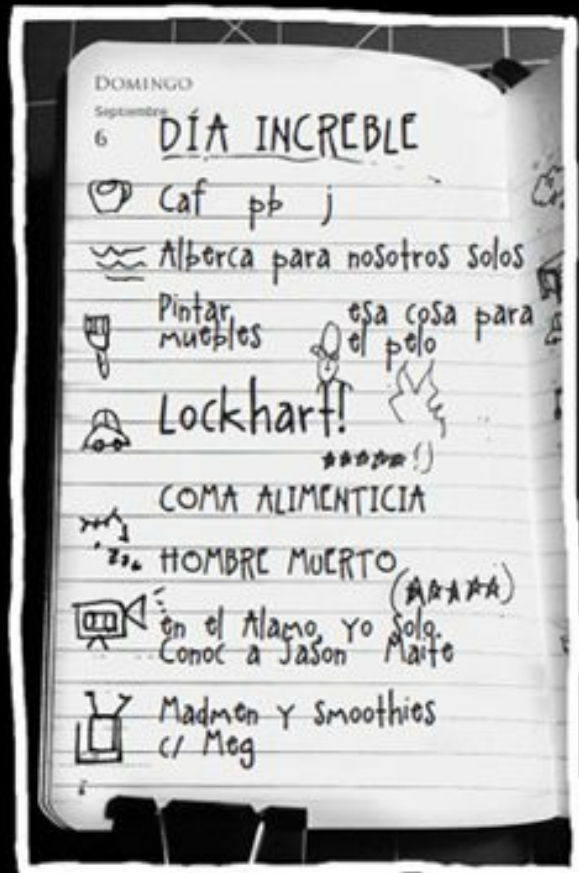 DOMINGO
Septiembre
6
DÍA INCREBLE
Caf pb j
Alberca para nosotros solos
Pintar muebles
esa cosa para el pelo
Lockhart!
★★★★★!)
COMA ALIMENTICIA
HOMBRE MUERTO
(★★★★★)
en el Alamo, yo solo.
Conoc a Jason Maite
Madmen y Smoothies
c/ Meg